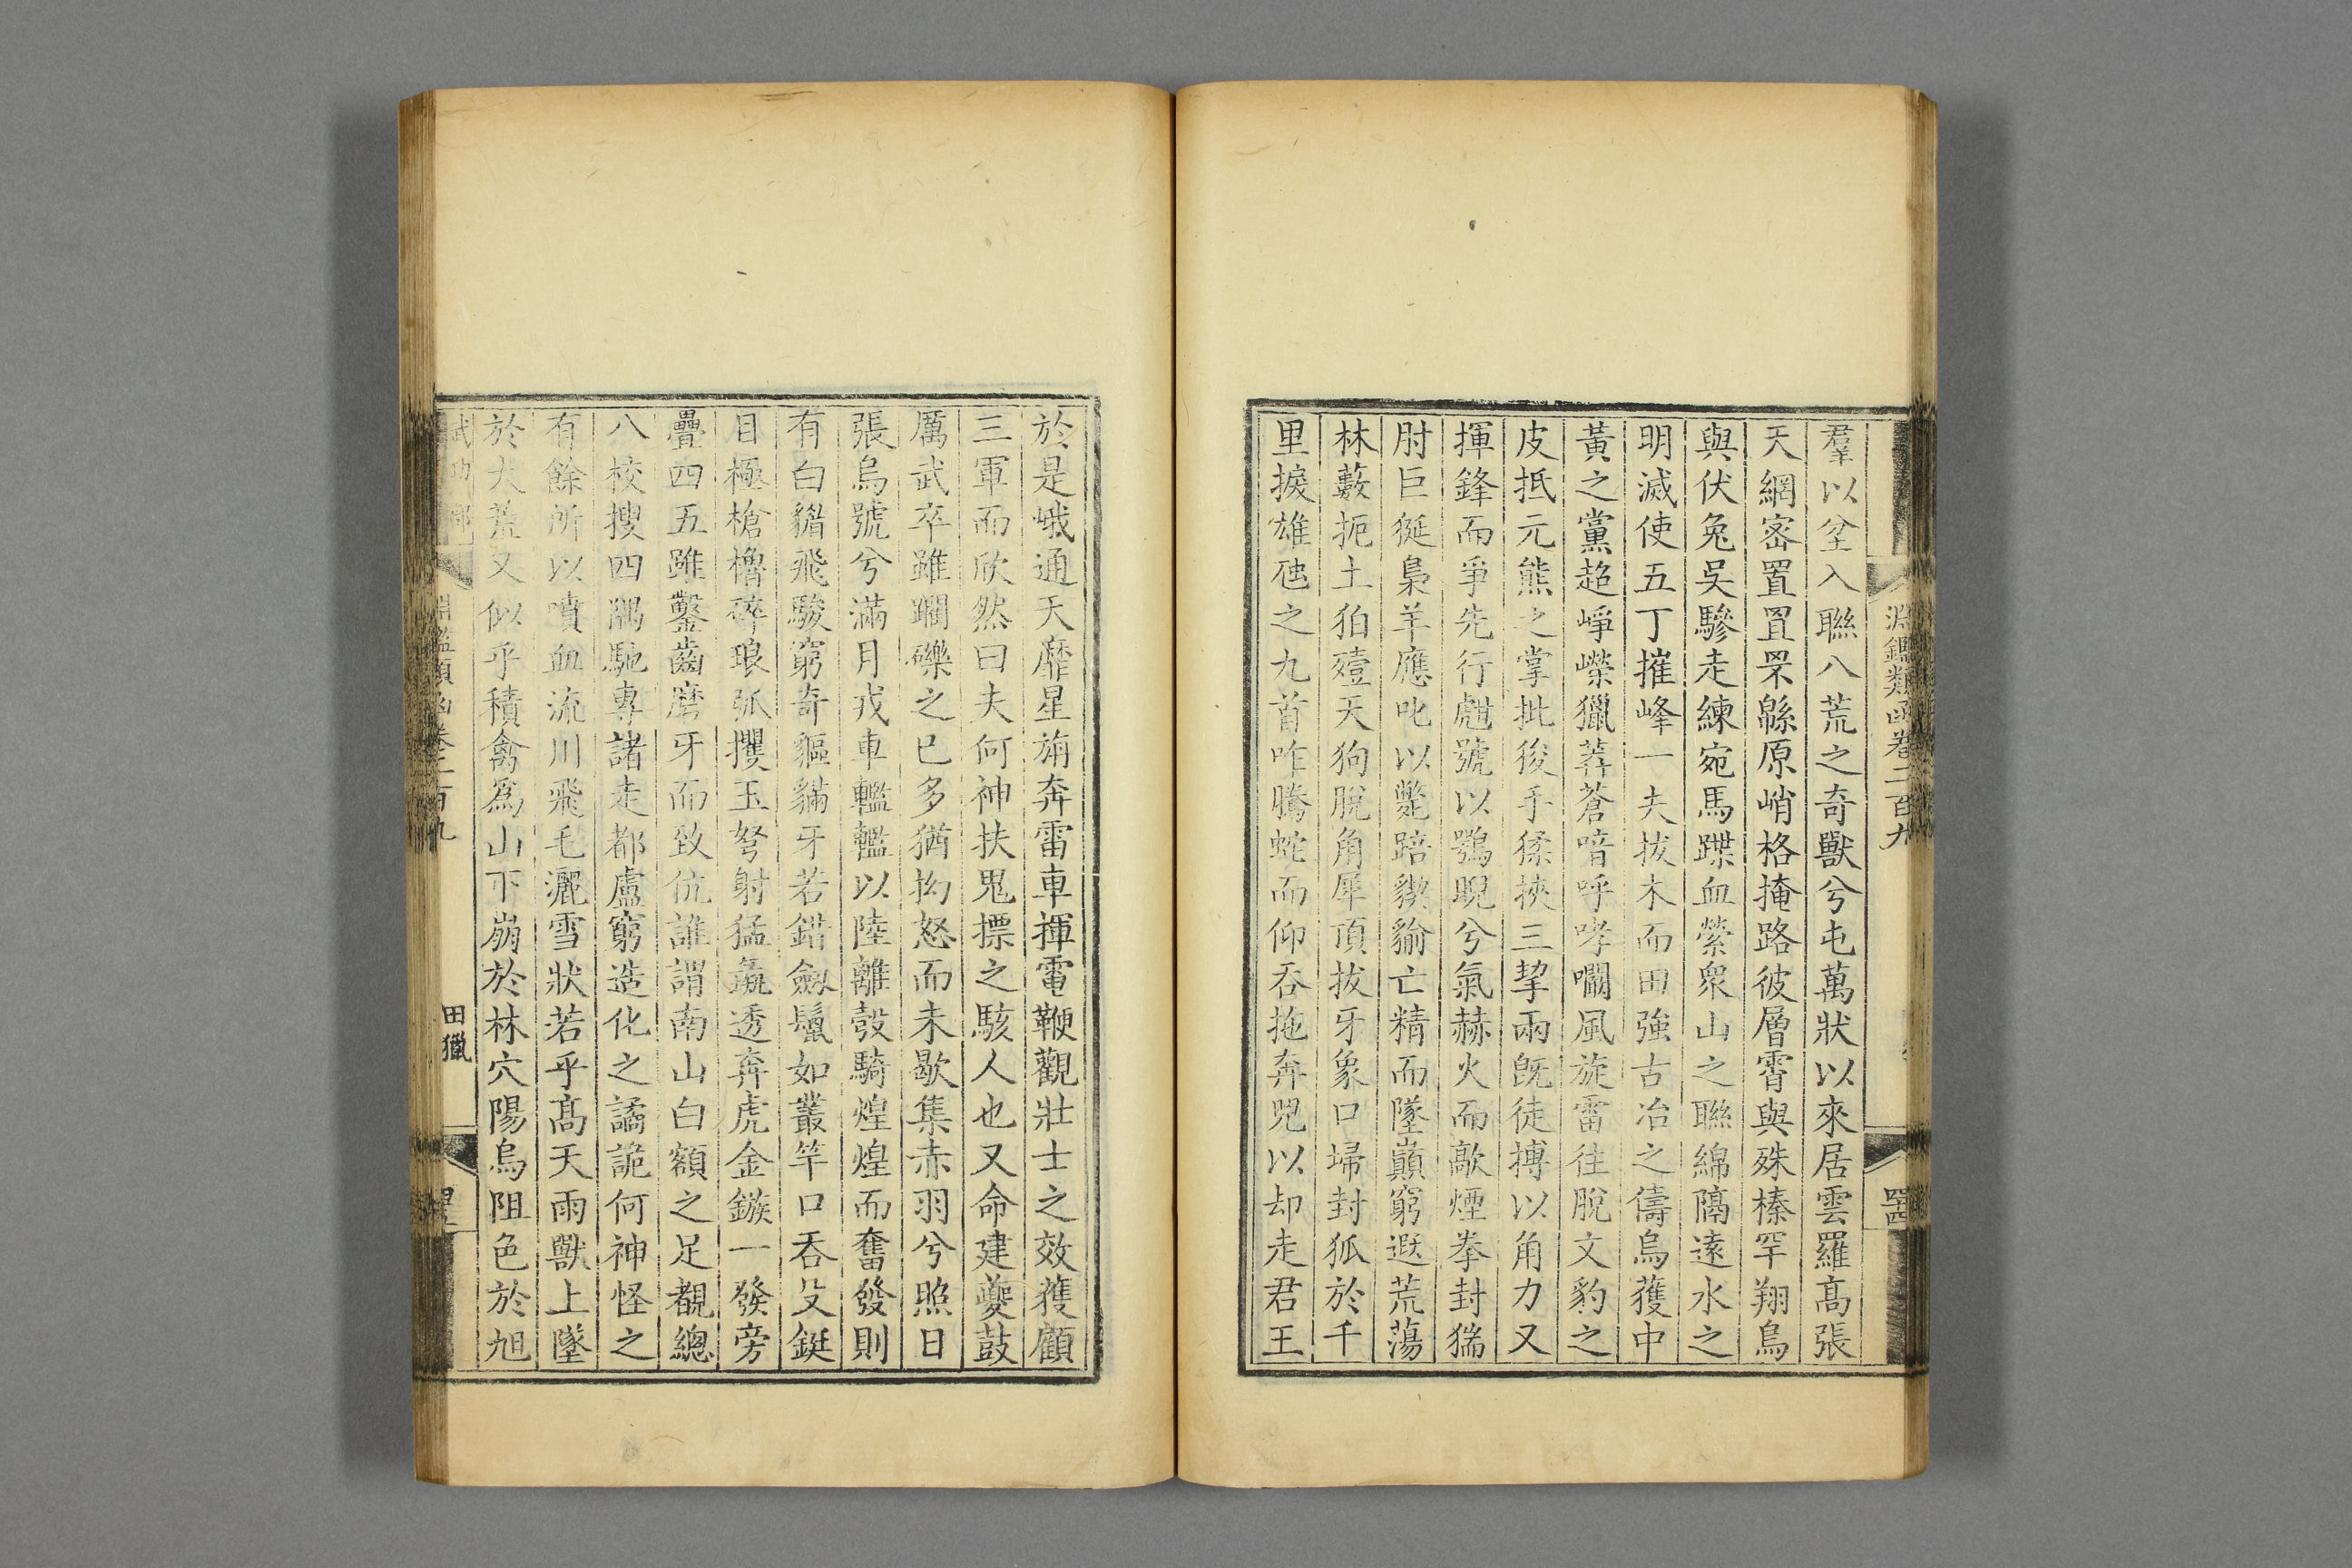 淵鑑類函卷二百九
羣以坌入聯八荒之奇獸兮屯萬狀以來居雲羅髙張
天網宻置罝罘緜原峭格掩路彼層霄與殊榛罕翔鳥
與伏兔吴驂走練宛馬蹀血縈衆山之聯綿隔逺水之
明滅使五丁摧峰一夫拔木而田強古冶之儔烏獲中
黃之黨超崢嶸獵莽蒼喑呼哮㘚風旋雷往脫文豹之
皮抵元熊之掌批狻手猱挾三挈兩旣徒搏以角力又
揮鋒而爭先行虣號以鶚睨兮氣赫火而歊煙拳封㺉
肘巨狿梟羊應叱以斃踣猰貐亡精而墜巔窮遐荒蕩
林藪扼土狛殪天狗脫角犀頂拔牙象口埽封狐於千
里捩雄虺之九首咋騰蛇而仰吞拖奔兕以却走君王
於是峨通天靡星旃奔雷車揮電鞭觀壯士之效獲顧
三軍而欣然曰夫何神扶鬼摽之駭人也又命建夔鼓
厲武卒雖躙礫之已多猶拗怒而未歇集赤羽兮照日
張烏號兮滿月戎車轞轞以陸離彀騎煌煌而奮發則
有白貓飛駿窮奇貙獌牙若錯劍鬛如叢竿口吞殳鋋
目極槍櫓碎琅弧攫玉弩射猛彘透奔虎金鏃一發旁
疊四五雖鑿齒磨牙而致伉誰謂南山白額之足覩總
八校搜四隅馳專諸走都盧窮造化之譎詭何神怪之
有餘所以噴血流川飛毛灑雪狀若乎髙天雨獸上墜
於大荒又似乎積禽爲山下崩於林穴陽烏阻色於旭
田獵